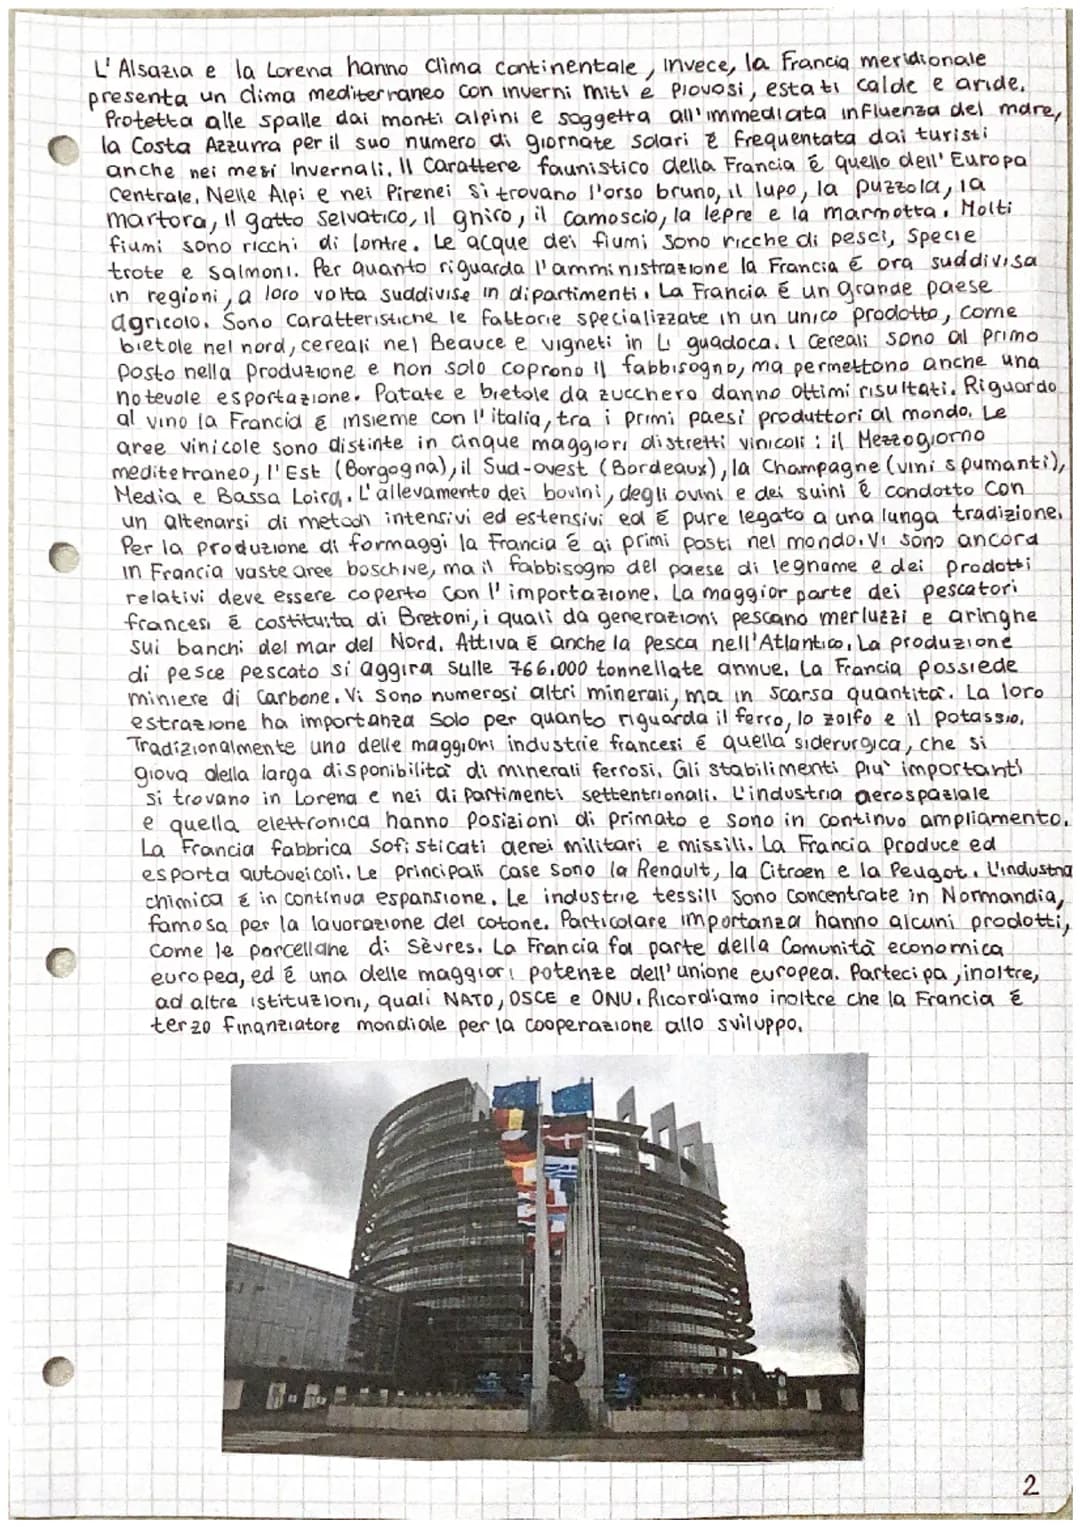 L'Alsazia e la Lorena hanno clima continentale, invece, la Francia meridionale
presenta un clima mediterraneo con inverni miti e piovosi, estati calde e aride.
Protetta alle spalle dai monti alpini e soggetta all'immediata influenza del mare,
la Costa Azzurra per il suo numero di giornate solari è frequentata dai turisti
anche nei mesi invernali. Il carattere faunistico della Francia è quello dell'Europa
centrale. Nelle Alpi e nei Pirenei si trovano l'orso bruno, il lupo, la puzzola, la
martora, il gatto selvatico, il ghiro, il camoscio, la lepre e la marmotta. Molti
fiumi sono ricchi di lontre. Le acque dei fiumi sono ricche di pesci, specie
trote e salmoni. Per quanto riguarda l'amministrazione la Francia è ora suddivisa
in regioni, a loro volta suddivise in dipartimenti. La Francia è un grande paese
agricolo. Sono caratteristiche le fattorie specializzate in un unico prodotto, come
bietole nel nord, cereali nel Beauce e vigneti in Li guadoca. I cereali sono al primo
posto nella produzione e non solo coprono il fabbisogno, ma permettono anche una
notevole esportazione. Patate e bietole da zucchero danno ottimi risultati. Riguardo
al vino la Francia è insieme con l'italia, tra i primi paesi produttori al mondo. Le
aree vinicole sono distinte in cinque maggiori distretti vinicoli: il Mezzogiorno
mediterraneo, l'Est (Borgogna), il Sud-ovest (Bordeaux), la Champagne (vini spumanti),
Media e Bassa Loira. L'allevamento dei bovini, degli ovini e dei suini è condotto con
un altenarsi di metodi intensivi ed estensivi ed è pure legato a una lunga tradizione.
Per la produzione di formaggi la Francia è ai primi posti nel mondo. Vi sono ancora
in Francia vaste aree boschive, ma il fabbisogno del paese di legname e dei prodotti
relativi deve essere coperto con l'importazione. La maggior parte dei pescatori
francesi è costituita di Bretoni, i quali da generazioni pescano merluzzi e aringhe
sui banchi del mar del Nord. Attiva è anche la pesca nell'Atlantico. La produzione
di pesce pescato si aggira sulle 766.000 tonnellate annue. La Francia possiede
miniere di carbone. Vi sono numerosi altri minerali, ma in scarsa quantità. La loro
estrazione ha importanza solo per quanto riguarda il ferro, lo zolfo e il potassio.
Tradizionalmente una delle maggiori industrie francesi è quella siderurgica, che si
giova della larga disponibilità di minerali ferrosi. Gli stabilimenti più importanti
si trovano in Lorena e nei dipartimenti settentrionali. L'industria aerospaziale
e quella elettronica hanno posizioni di primato e sono in continuo ampliamento.
La Francia fabbrica sofisticati aerei militari e missili. La Francia produce ed
esporta autoveicoli. Le principali case sono la Renault, la Citroen e la Peugot. L'industria
chimica è in continua espansione. Le industrie tessili sono concentrate in Normandia,
famosa per la lavorazione del cotone. Particolare importanza hanno alcuni prodotti,
come le porcellane di Sèvres. La Francia fa parte della Comunità economica
europea, ed è una delle maggiori potenze dell'unione europea. Partecipa, inoltre,
ad altre istituzioni, quali NATO, OSCE e ONU. Ricordiamo inoltre che la Francia è
terzo finanziatore mondiale per la cooperazione allo sviluppo.
2